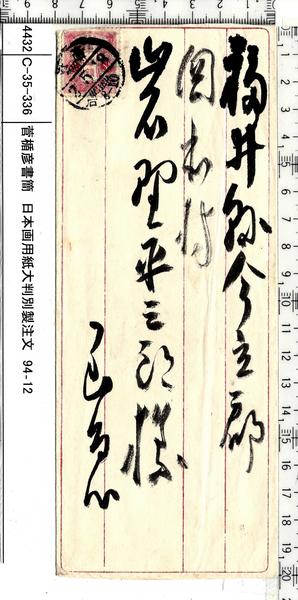 福井縣今立郡
岡本村
岩野平三郎様
4432 C-35-336 菅楯彦書簡 日本画用紙大判別製注文 94-12